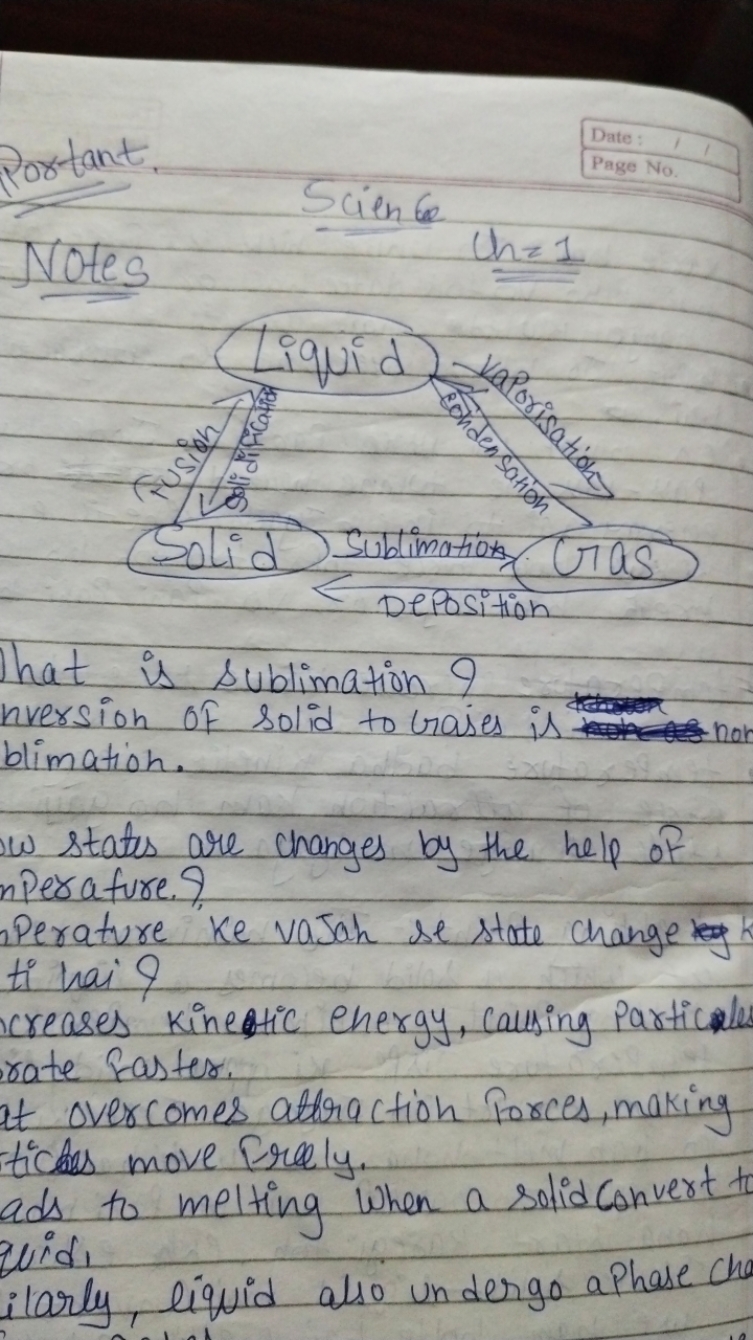 Date : / /
Page No.
portant.
Science
Ch = 1
Notes
Liquid
Vaporisation
Condensation
Fusion
Solidification
Solid
Sublimation
Gas
Deposition
hat is sublimation ?
nversion of solid to Gases is non
blimation.
ow states are changes by the help of
mperature.?
mperature ke vajah se state change k
ti hai ?
creases kinetic energy, causing Particles
brate faster.
at overcomes attraction forces, making
rticles move freely.
ads to melting when a solid convert to
quid.
ilarly, liquid also undergo a phase cha